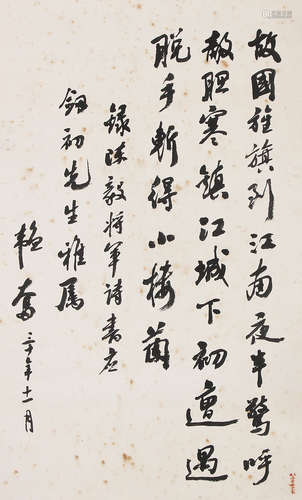 故國旌旗到江南夜半驚呼
敵胆寒鎮江城下初遭遇
脱手斬得小樓蘭
錄陳毅將軍詩書应
初先生雅属
韜奮 三十年十一月